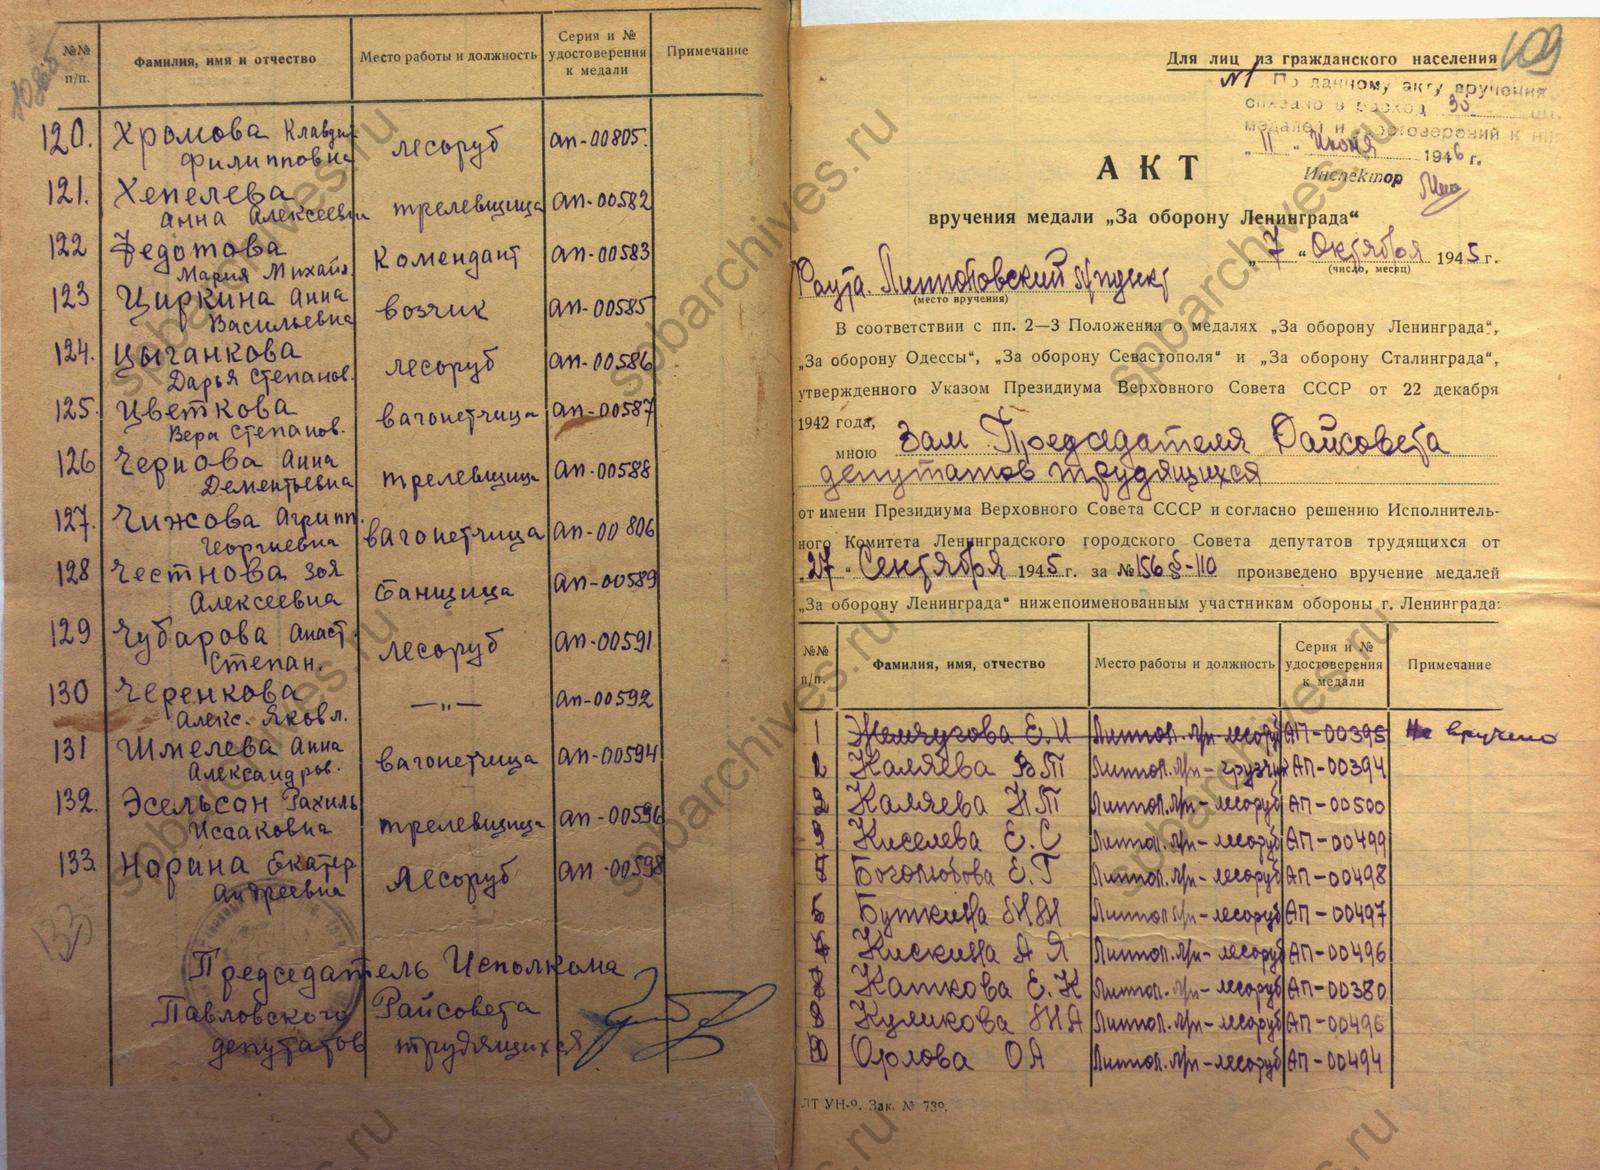 №№ п/п.
Фамилия, имя и отчество
Место работы и должность
Серия и № удостоверения к медали
Примечание
120. Хромова Клавдия лесоруб ап-00805.
Филипповна
121. Хепелева трелевщица ап-00582
Анна Алексеевн
122 Федотова Комендант ап-00583
Мария Михайл.
123 Циркина Анна возчик ап-00585
Васильевна
124. Цыганкова лесоруб ап-00586
Дарья Степанов.
125. Цветкова вагонетчица ап-00587
Вера Степанов.
126 Чернова Анна трелевщица ап-00588
Дементьевна
127. Чижова Агрипп. вагонетчица ап-00806
Георгиевна
128 Честнова Зоя банщица ап-00589
Алексеевна
129 Чубарова Анаст. лесоруб ап-00591
Степан.
130 Черенкова —"— ап-00592
Алекс. Яковл.
131 Шмелева Анна вагонетчица ап-00594
Александров.
132. Эсельсон Рахиль трелевщица ап-00596
Иссаковна
133. Нарина Екатер Лесоруб ап-00598
Андреевна
133
Председатель Исполкома
Павловского Райсовета
депутатов трудящихся
109
Для лиц из гражданского населения
№1 По данному акту вручения
списано в расход 30 шт.
медалей и удостоверений к ним
„11" Июня 1946 г.
Инспектор
АКТ
вручения медали „За оборону Ленинграда“
„7“ Октября 1945 г.
(число, месяц)
Раута.
(место вручения)
В соответствии с пп. 2—3 Положения о медалях „За оборону Ленинграда“,
„За оборону Одессы“, „За оборону Севастополя“ и „За оборону Сталинграда“,
утвержденного Указом Президиума Верховного Совета СССР от 22 декабря
1942 года,
мною Зам Председателя Райсовета
депутатов трудящихся
от имени Президиума Верховного Совета СССР и согласно решению Исполнитель-
ного Комитета Ленинградского городского Совета депутатов трудящихся от
„27“ Сентября 1945 г. за №156 §-110 произведено вручение медалей
„За оборону Ленинграда“ нижепоименованным участникам обороны г. Ленинграда:
№№ п/п.
Фамилия, имя, отчество
Место работы и должность
Серия и № удостоверения к медали
Примечание
1 Жемчугова Е.И лесоруб АП-00395 Не вручено
2 Каляева В Т грузчик АП-00394
Каляева Н.Т лесоруб АП-00500
Киселева Е.С лесоруб АП-00499
Боголюбова Е.Г лесоруб АП-00498
Буткина лесоруб АП-00497
Кискина А Я лесоруб АП-00496
Каткова Е.К лесоруб АП-00380
8 Куликова лесоруб АП-00496
Орлова О А лесоруб АП-00494
ЛТ УН-9. Зак. № 739.
spbarchives.ru